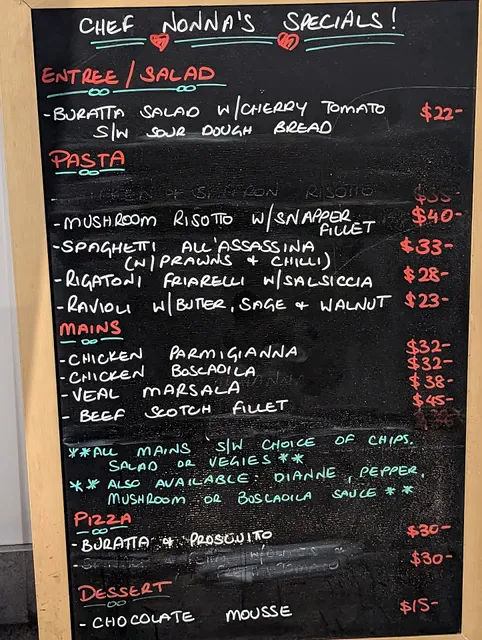 CHEF NONNA'S SPECIALS!
ENTREE/SALAD
-BURATTA SALAD W/CHERRY TOMATO $22-
S/W SOUR DOUGH BREAD
PASTA
RISOTTO
-MUSHROOM RISOTTO W/SNAPPER $40-
FILLET
-SPAGHETTI ALL'ASSASSINA $33-
(W/PRAWNS & CHILLI)
-RIGATONI FRIARELLI W/SALSICCIA $28-
-RAVIOLI W/BUTER, SAGE & WALNUT $23-
MAINS
-CHICKEN PARMIGIANNA $32-
-CHICKEN BOSCAOILA $32-
-VEAL MARSALA $38-
-BEEF SCOTCH FILLET $45-
**ALL MAINS S/W CHOICE OF CHIPS.
SALAD OR VEGIES**
** ALSO AVAILABLE: DIANNE, PEPPER,
MUSHROOM OR BOSCAOILA SAUCE**
PIZZA
-BURATTA & PROSCUITO $30-
$30-
DESSERT
-CHOCOLATE MOUSSE $15-